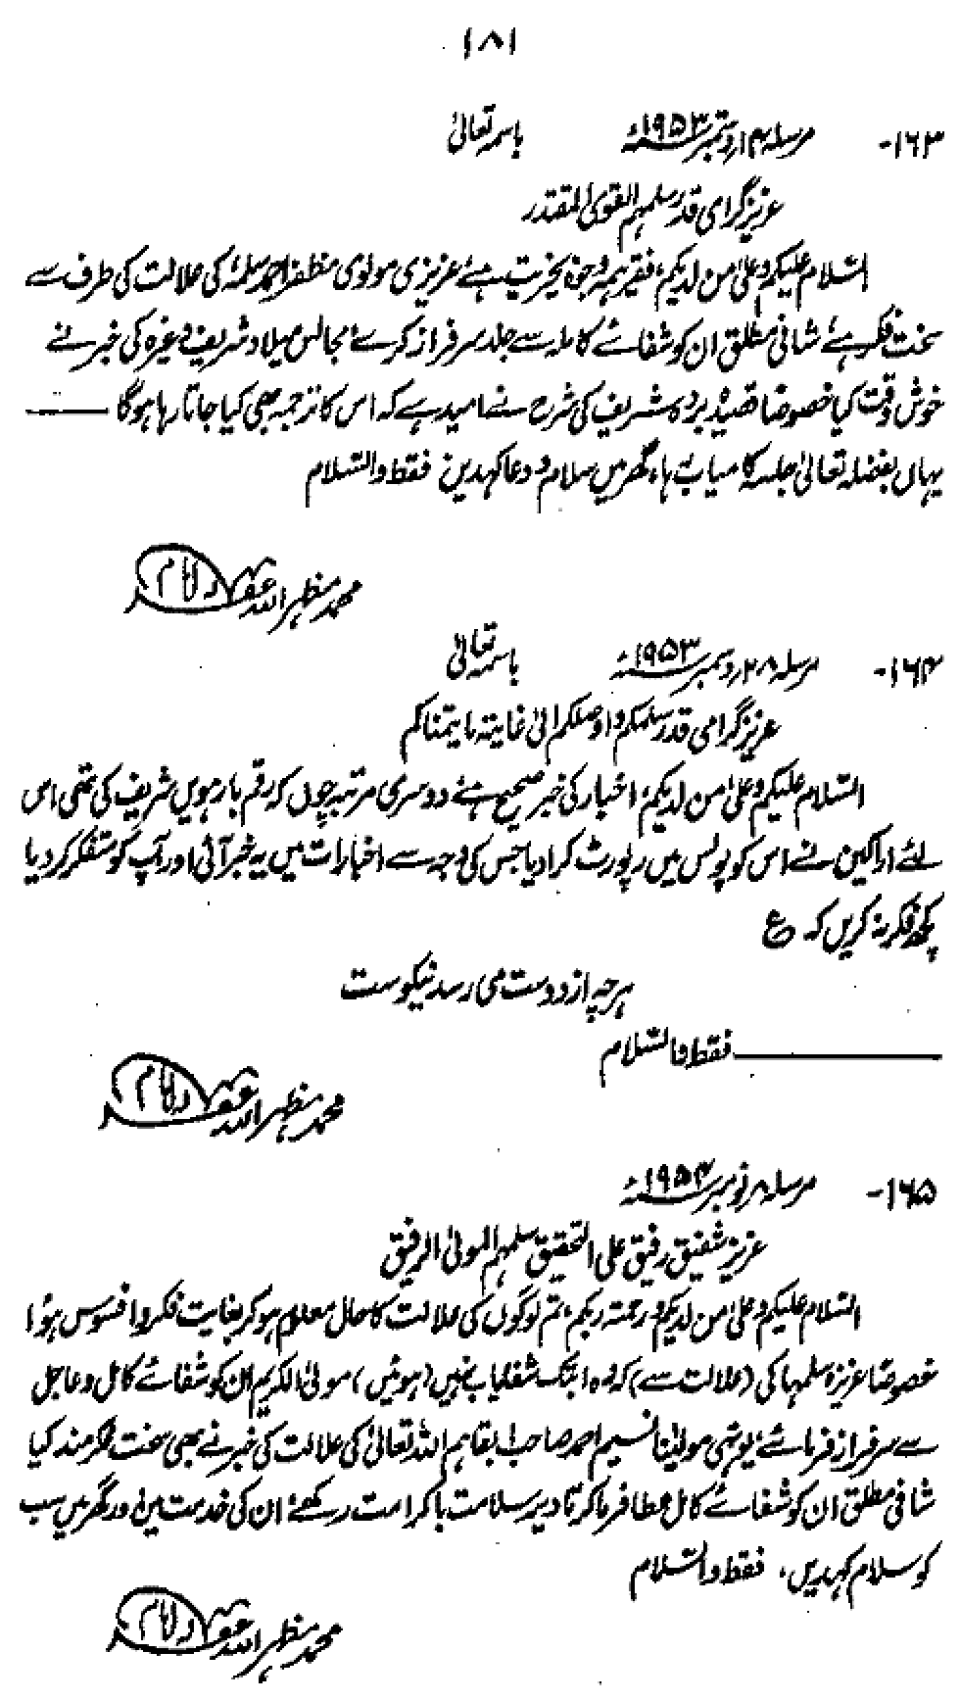 ۱۸۱
۱۶۳- مرسلہ ۱۴ر دسمبر ۱۹۵۳ء باسمہ تعالیٰ
عزیز گرامی قدر سلمہم القوی المقتدر
السّلام علیکم وعلیٰ من لدیکم، فقیر بہمہ وجوہ بخیریت ہے، عزیزی مولوی مظفر احمد سلمہٗ کی علالت کی طرف سے
سخت فکر ہے، شافی مطلق ان کو شفائے کاملہ سے جلد سرفراز کرے، مجالس میلاد شریف وغیرہ کی خبر نے
خوش وقت کیا خصوصًا قصیدہ بردہ شریف کی شرح نے امید ہے کہ اس کا ترجمہ بھی کیا جاتا رہا ہوگا ———
یہاں بفضلہ تعالیٰ جلسہ کامیاب رہا، گھر میں سلام و دعا کہدین فقط والسّلام
محمد مظہر اللہ غفرلہ امام
۱۶۴- مرسلہ ۲۸ر دسمبر ۱۹۵۳ء باسمہ تعالیٰ
عزیز گرامی قدر سلمکم واوصلکم الیٰ غایتہ ما یتمناکم
السّلام علیکم وعلیٰ من لدیکم، اخبار کی خبر صحیح ہے، دوسری مرتبہ چوں کہ رقم بارہویں شریف کی تھی اس
لئے اراکین نے اس کو پولس میں رپورٹ کرا دیا جس کی وجہ سے اخبارات میں یہ خبر آئی اور آپ کو متفکر کر دیا
کچھ فکر نہ کریں کہ ع
ہرچہ از دوست می رسد نیکوست
——— فقط والسّلام
محمد مظہر اللہ غفرلہ امام
۱۶۵- مرسلہ ۸ر نومبر ۱۹۵۴ء
عزیز شفیق رفیق علی التحقیق سلمہم المولیٰ الرفیق
السّلام علیکم وعلیٰ من لدیکم ورحمتہ ربکم، تم لوگوں کی علالت کا حال معلوم ہو کر بغایت فکر و افسوس ہوا
خصوصًا عزیزہ سلمہا کی (علالت سے) کہ وہ ابتک شفایاب نہیں (ہوئیں)، مولیٰ الکریم ان کو شفائے کامل و عاجل
سے سرفراز فرمائے، یونہی مولینا نسیم احمد صاحب ابقاہم اللہ تعالیٰ کی علالت کی خبر نے بھی سخت فکر مند کیا
شافی مطلق ان کو شفائے کامل عطا فرما کر تا دیر سلامت باکرامت رکھے، ان کی خدمت میں اور گھر میں سب
کو سلام کہدیں، فقط والسّلام
محمد مظہر اللہ غفرلہ امام